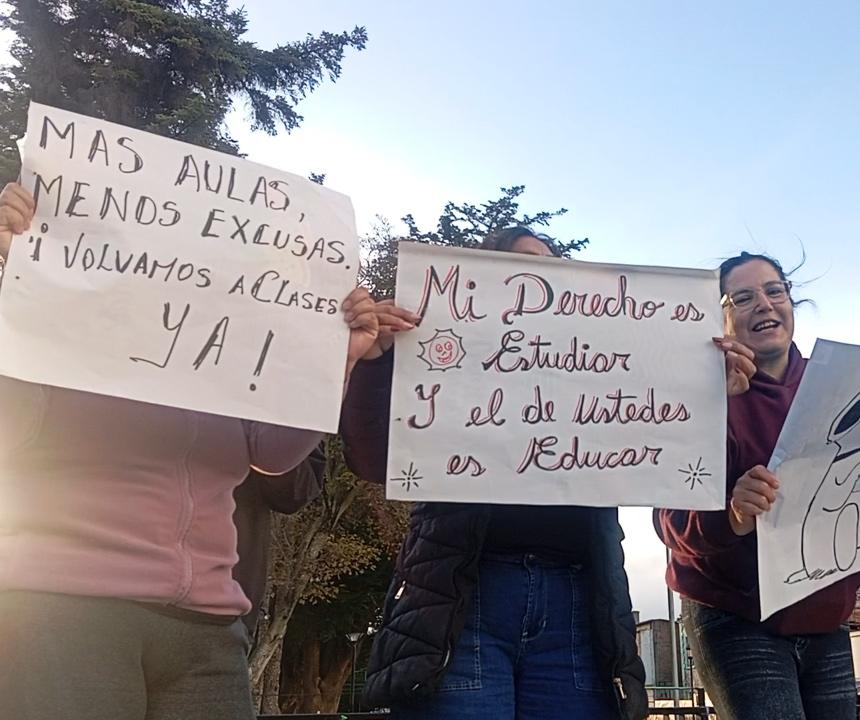 MAS AULAS,
MENOS EXCUSAS.
¡VOLVAMOS A CLASES
YA!
Mi Derecho es
Estudiar
Y el de ustedes
es Educar